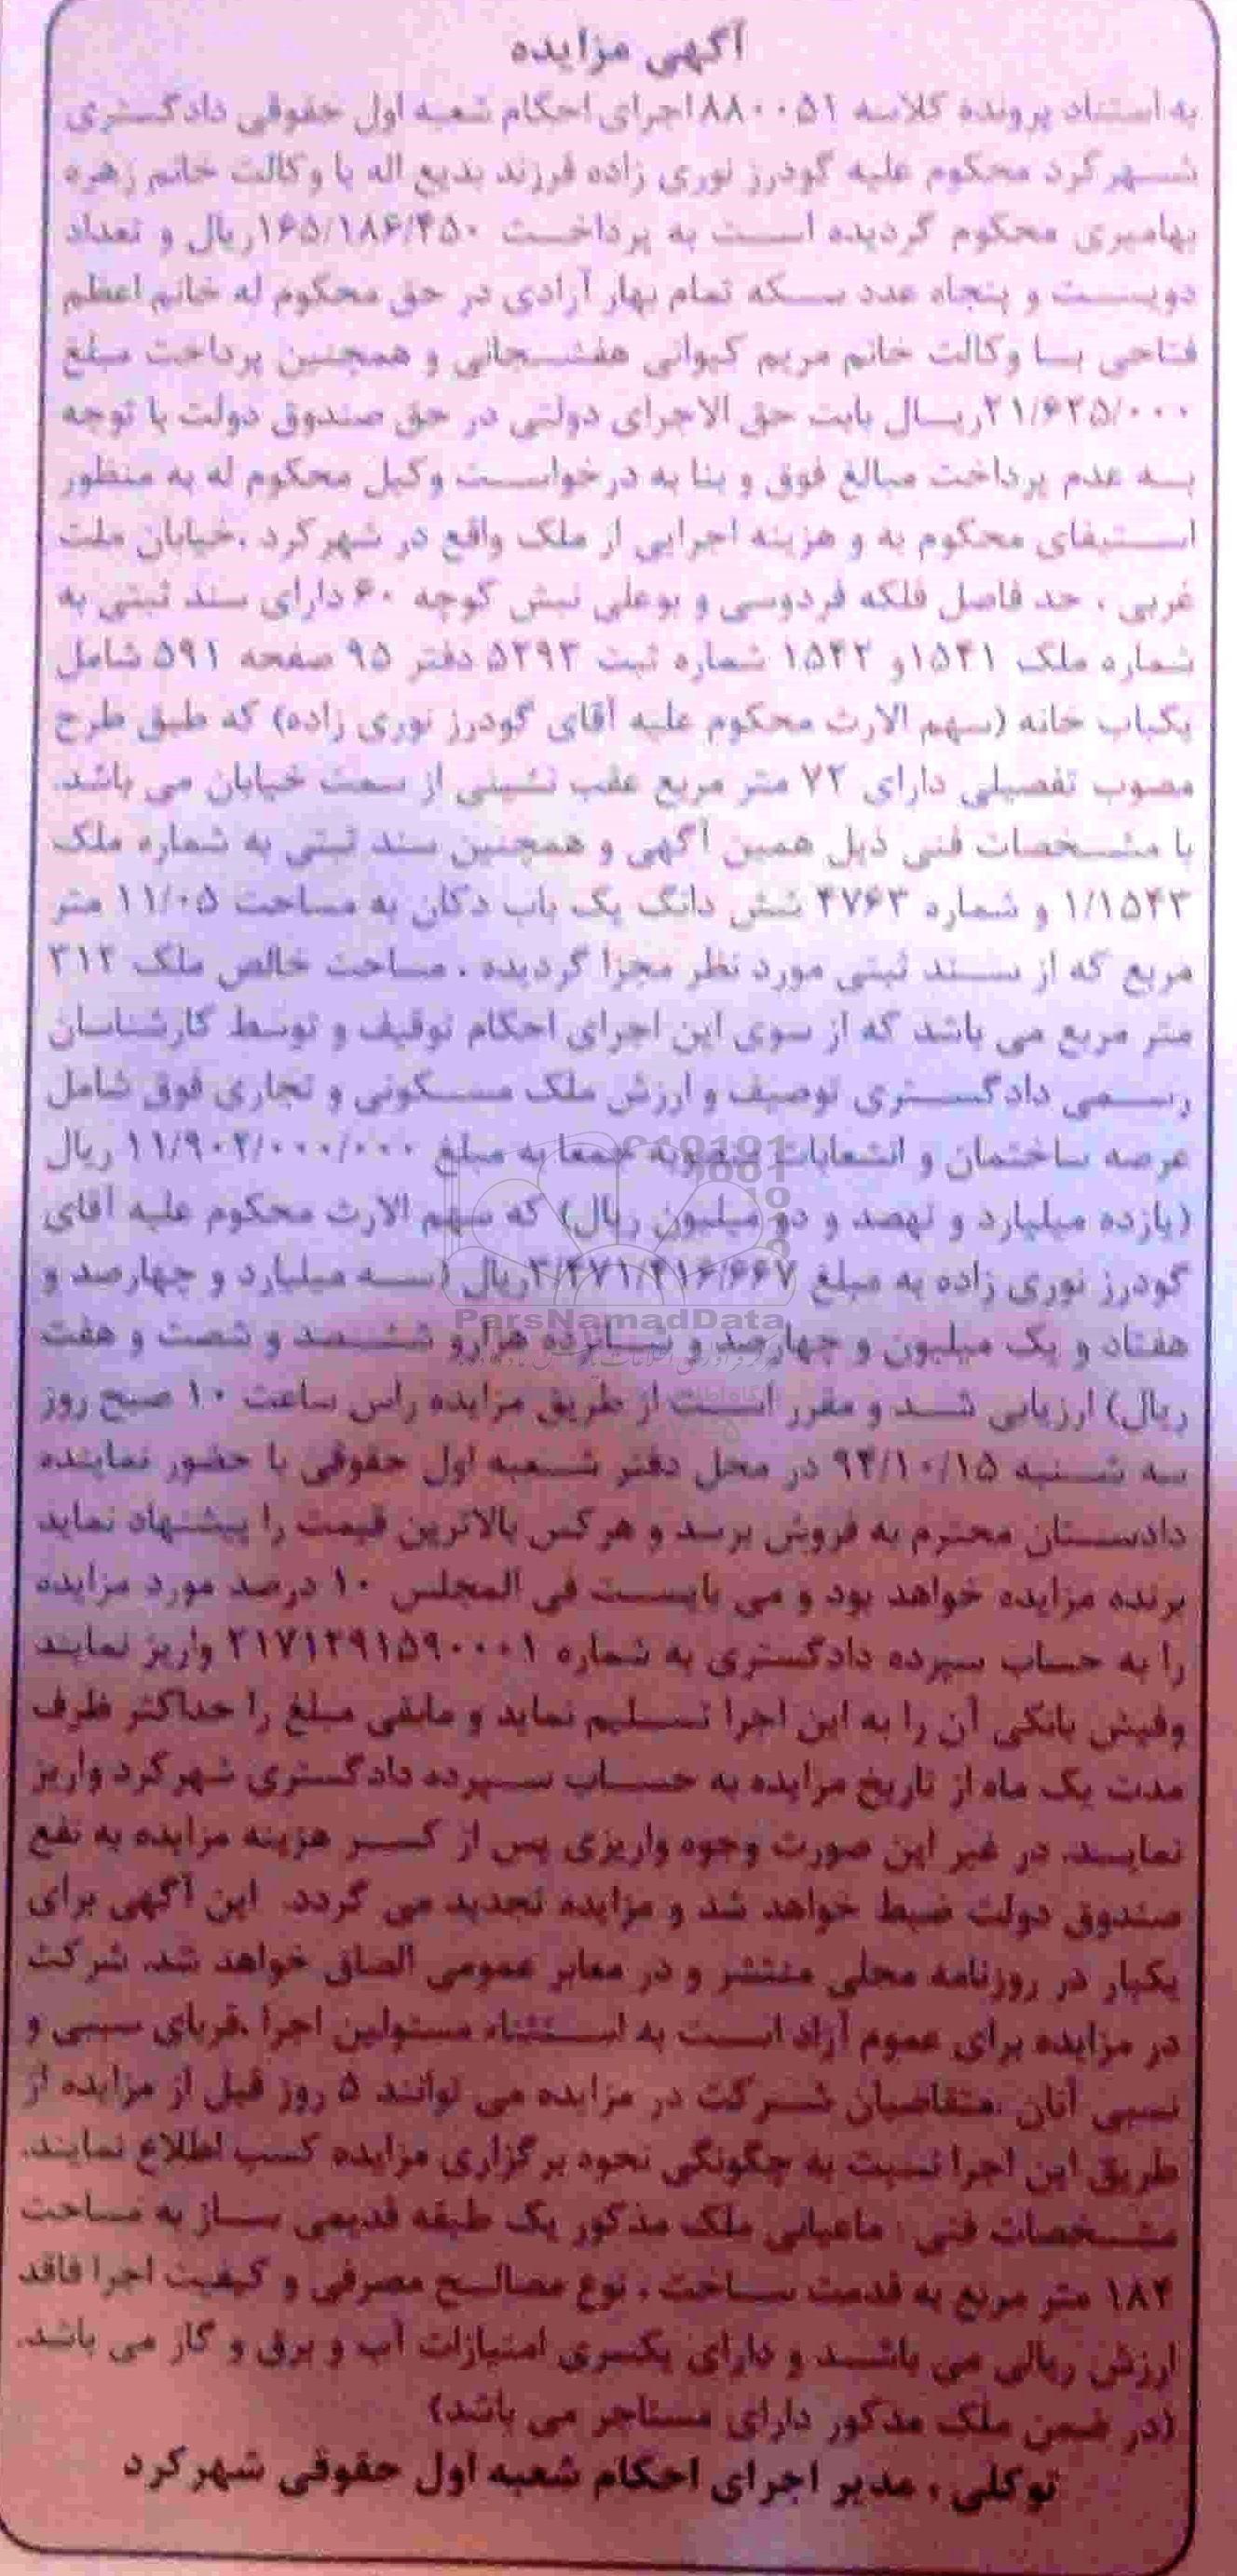 آگهی مزایده
به استناد پرونده کلاسه ۸۸۰۰۵۱ اجرای احکام شعبه اول حقوقی دادگستری
شهرکرد محکوم علیه گودرز نوری زاده فرزند بدیع اله با وکالت خانم زهره
بهامیری محکوم گردیده است به پرداخت ۱۶۵/۱۸۶/۴۵۰ ریال و تعداد
دویست و پنجاه عدد سکه تمام بهار آزادی در حق محکوم له خانم اعظم
فتاحی با وکالت خانم مریم کیوانی هفشجانی و همچنین پرداخت مبلغ
۲۱/۶۲۵/۰۰۰ ریال بابت حق الاجرای دولتی در حق صندوق دولت با توجه
به عدم پرداخت مبالغ فوق و بنا به درخواست وکیل محکوم له به منظور
استیفای محکوم به و هزینه اجرایی از ملک واقع در شهرکرد ،خیابان ملت
غربی ، حد فاصل فلکه فردوسی و بوعلی نبش کوچه ۶۰ دارای سند ثبتی به
شماره ملک ۱۵۴۱ و ۱۵۴۲ شماره ثبت ۵۲۹۳ دفتر ۹۵ صفحه ۵۹۱ شامل
یکباب خانه (سهم الارث محکوم علیه آقای گودرز نوری زاده) که طبق طرح
مصوب تفصیلی دارای ۷۲ متر مربع عقب نشینی از سمت خیابان می باشد.
با مشخصات فنی ذیل همین آگهی و همچنین سند ثبتی به شماره ملک
۱/۱۵۴۳ و شماره ۴۷۶۳ شش دانگ یک باب دکان به مساحت ۱۱/۰۵ متر
مربع که از سند ثبتی مورد نظر مجزا گردیده ، مساحت خالص ملک ۳۱۲
متر مربع می باشد که از سوی این اجرای احکام توقیف و توسط کارشناسان
رسمی دادگستری توصیف و ارزش ملک مسکونی و تجاری فوق شامل
عرصه ساختمان و انشعابات منصوبه جمعا به مبلغ ۱۱/۹۰۲/۰۰۰/۰۰۰ ریال
(یازده میلیارد و نهصد و دو میلیون ریال) که سهم الارث محکوم علیه آقای
گودرز نوری زاده به مبلغ ۳/۴۷۱/۴۱۶/۶۶۷ ریال (سه میلیارد و چهارصد و
ParsNamadData
هفتاد و یک میلیون و چهارصد و شانزده هزارو ششصد و شصت و هفت
ریال) ارزیابی شد و مقرر است از طریق مزایده راس ساعت ۱۰ صبح روز
سه شنبه ۹۴/۱۰/۱۵ در محل دفتر شعبه اول حقوقی با حضور نماینده
دادستان محترم به فروش برسد و هرکس بالاترین قیمت را پیشنهاد نماید
برنده مزایده خواهد بود و می بایست فی المجلس ۱۰ درصد مورد مزایده
را به حساب سپرده دادگستری به شماره ۲۱۷۱۲۹۱۵۹۰۰۰۱ واریز نمایند
وفیش بانکی آن را به این اجرا تسلیم نماید و مابقی مبلغ را حداکثر ظرف
مدت یک ماه از تاریخ مزایده به حساب سپرده دادگستری شهرکرد واریز
نمایند. در غیر این صورت وجوه واریزی پس از کسر هزینه مزایده به نفع
صندوق دولت ضبط خواهد شد و مزایده تجدید می گردد. این آگهی برای
یکبار در روزنامه محلی منتشر و در معابر عمومی الصاق خواهد شد. شرکت
در مزایده برای عموم آزاد است به استثناء مسئولین اجرا ،قربای سببی و
نسبی آنان .متقاضیان شرکت در مزایده می توانند ۵ روز قبل از مزایده از
طریق این اجرا نسبت به چگونگی نحوه برگزاری مزایده کسب اطلاع نمایند.
مشخصات فنی : ماعیانی ملک مذکور یک طبقه قدیمی ساز به مساحت
۱۸۴ متر مربع به قدمت ساخت ، نوع مصالح مصرفی و کیفیت اجرا فاقد
ارزش ریالی می باشد و دارای یکسری امتیازات آب و برق و گاز می باشد.
(در ضمن ملک مذکور دارای مستاجر می باشد)
توکلی ، مدیر اجرای احکام شعبه اول حقوقی شهرکرد